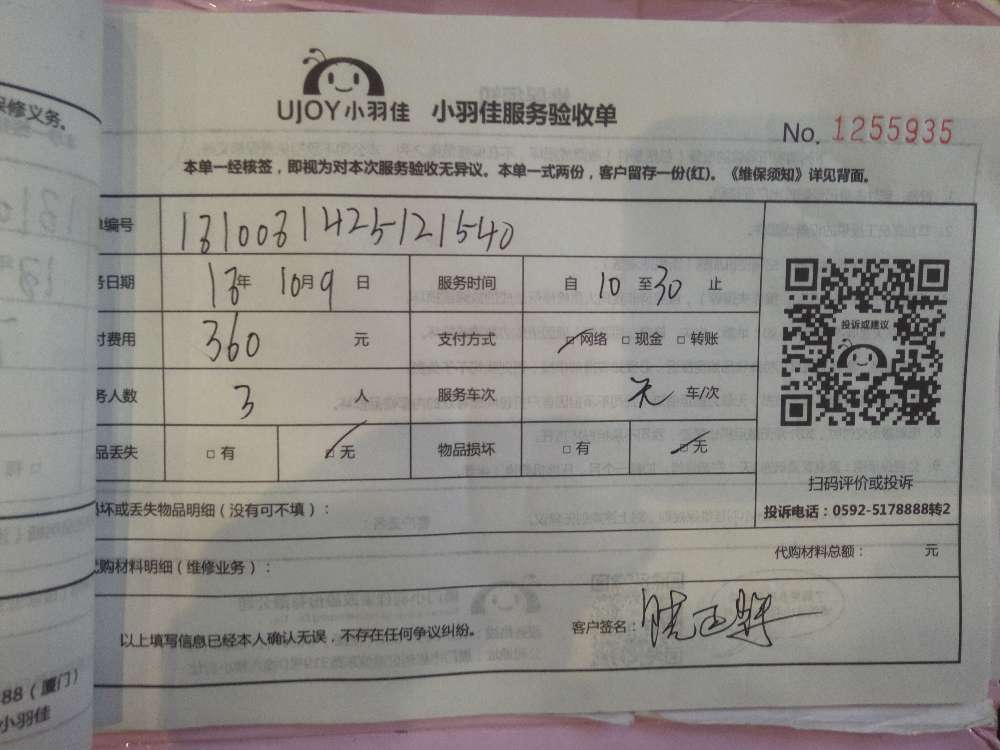 UJOY小羽佳 小羽佳服务验收单
No. 1255935
本单一经核签，即视为对本次服务验收无异议。本单一式两份，客户留存一份(红)。《维保须知》详见背面。
保修义务。
编号 1810081425121540
务日期 18年 10月9日 服务时间 自 10 至30 止
付费用 360 元 支付方式 □网络 □现金 □转账
务人数 3 人 服务车次 无 车/次
品丢失 □有 □无 物品损坏 □有 □无
投诉或建议
扫码评价或投诉
投诉电话：0592-5178888转2
损坏或丢失物品明细（没有可不填）：
代购材料总额： 元
代购材料明细（维修业务）：
以上填写信息已经本人确认无误，不存在任何争议纠纷。
客户签名：
88（厦门）
小羽佳